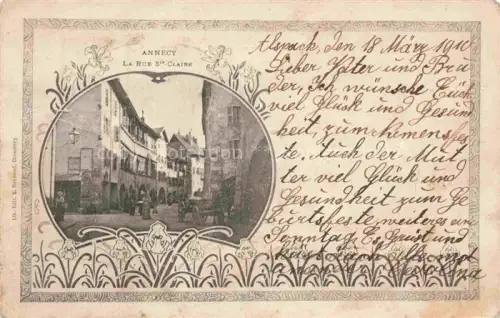 ANNECY
LA RUE STE-CLAIRE
den 18 März 1910
Lieber Vater und Bru-
der, Ich wünsche Euch
viel Glück und Gesund-
heit, zum Namensfes-
te. Auch der Mut-
ter viel Glück und
Gesundheit zum Ge-
burtsfeste, weiteres am
Sonntag. Es Grüst und